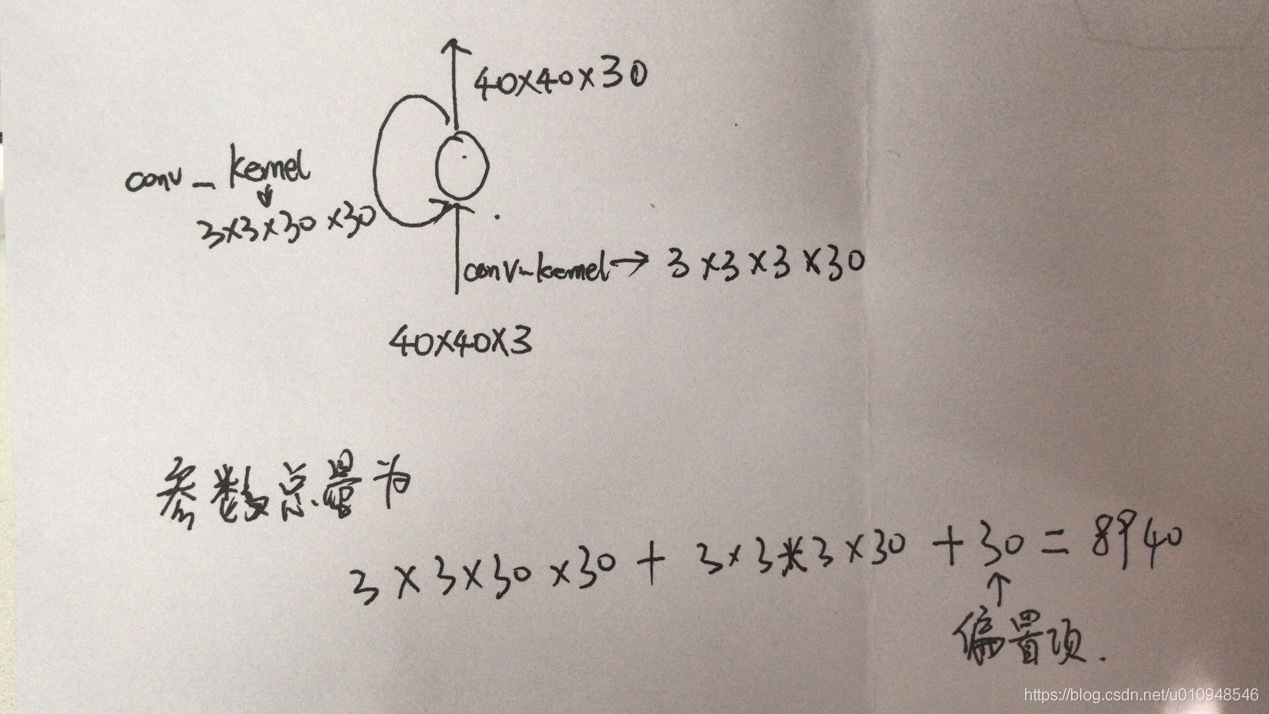 40×40×30
conv_kernel
3×3×30×30
conv-kernel→3×3×3×30
40×40×3
参数总量为
3×3×30×30+3×3*3×30+30=8940
偏置项.
https://blog.csdn.net/u010948546